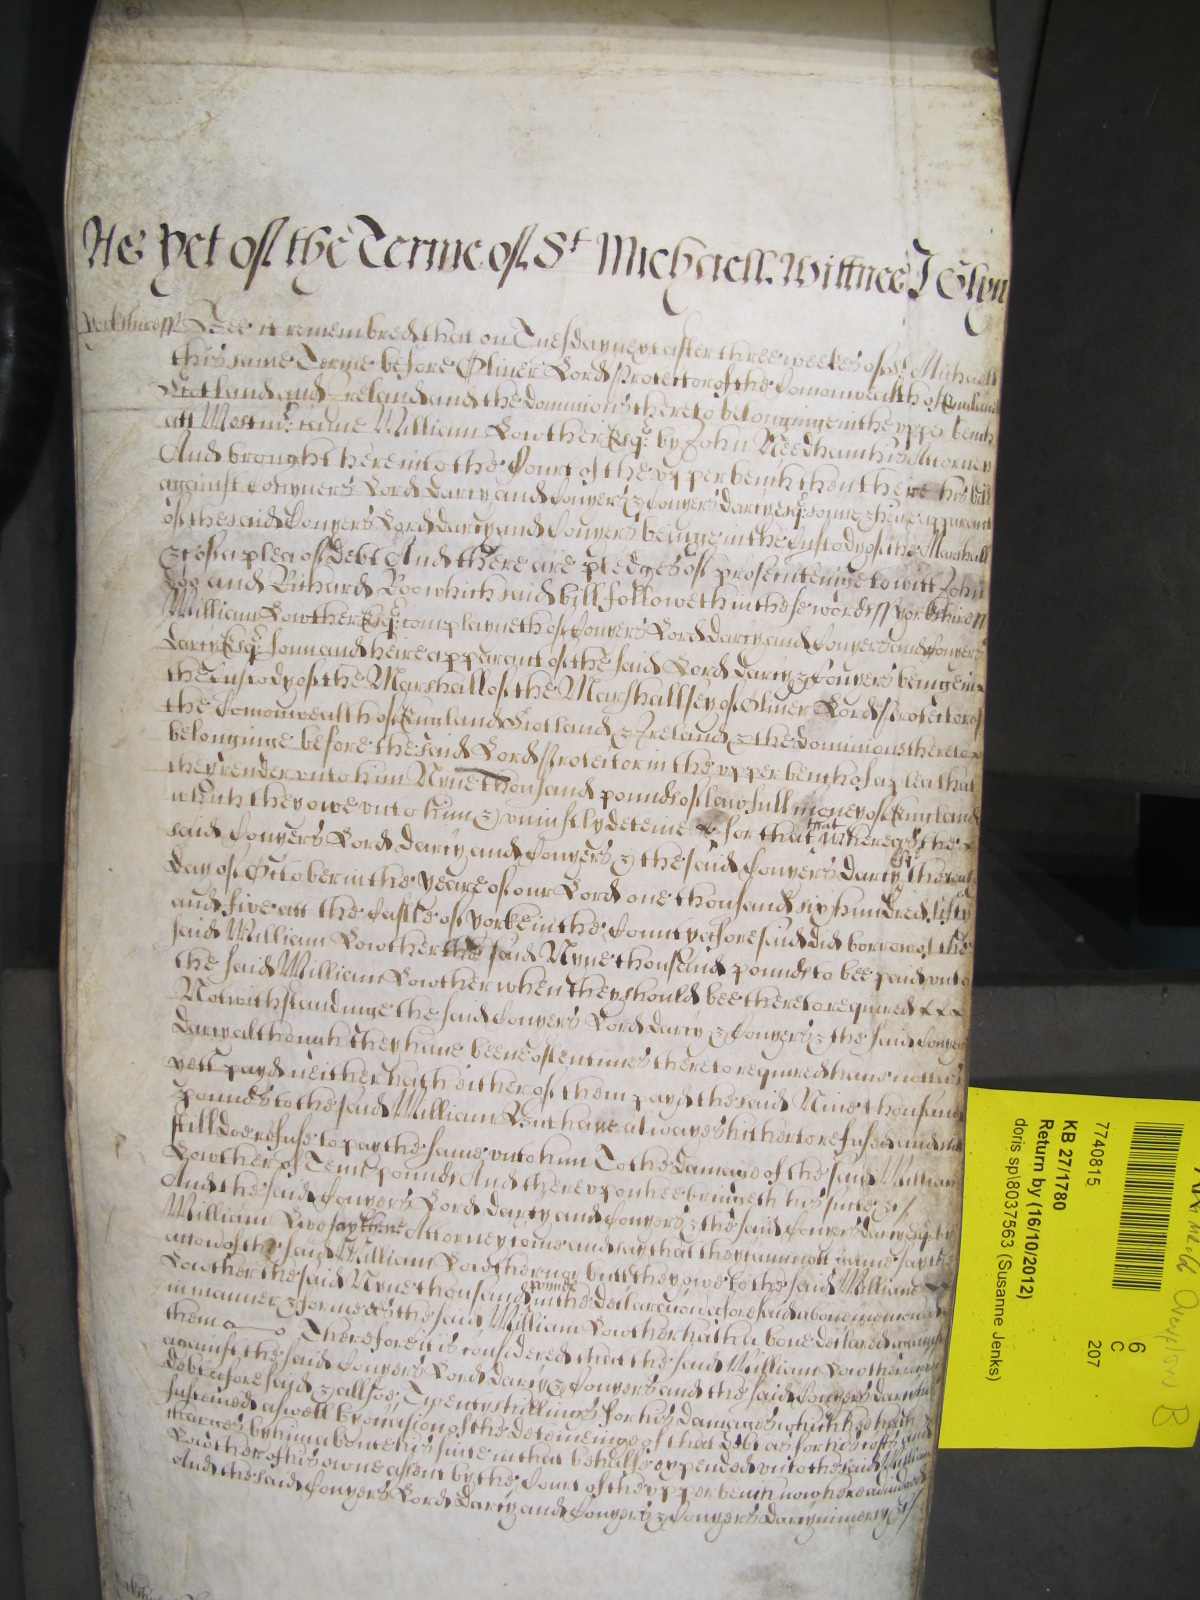 As yet of the Terme of St Michaell. Wittnes J Glyn
Yorkshire ss Bee it remembred that on Tuesday next after three weekes of St Michaell
this same Terme before Oliver Lord Protector of the Comonwealth of England
Scotland and Ireland and the dominions thereto belonginge in the upper bench
att Westmr came William Lowther Esqr by John Needham his Attorney
And brought here into the Court of the upper bench then there his bill
against Conyers Lord Darcy and Conyers & Conyers Darcy Esqr sonne & heire apparant
of the said Conyers Lord Darcy and Conyers beinge in the Custody of the Marshall
&c of a plea of Debt And there are pledges of prosecuteinge to witt John
Doo and Richard Roo which said bill followeth in these words ss Yorkshire ss
William Lowther Esqr complayneth of Conyers Lord Darcy and Conyers and Conyers
Darcy Esqr sonn and heire apparant of the said Lord Darcy & Conyers beinge in
the Custody of the Marshall of the Marshallsey of Oliver Lord Protector of
the Comonwealth of England Scotland & Ireland & the dominions thereto
belonginge before the said Lord Protector in the upper bench of a plea that
they render unto him Nyne thousand pounds of lawfull money of England
which they owe unto him & uniustly deteine for that that whereas the
said Conyers Lord Darcy and Conyers & the said Conyers Darcy the
day of October in the yeare of our Lord one thousand six hundred fifty
and five att the Castle of Yorke in the County aforesaid did borrow of the
said William Lowther the said Nyne thousand pounds to bee paid unto
the said William Lowther when they should bee thereto required
Notwithstandinge the said Conyers Lord Darcy & Conyers & the said Conyers
Darcy although they have beene oftentimes thereto required have not as
yett payd neither hath either of them payd the said Nine thousand
pounds to the said William Butt have alwayes hitherto refused and
still doe refuse to pay the same unto him To the damage of the said William
Lowther of Tenn pounds And thereupon hee bringeth his suite &c
And the said Conyers Lord Darcy and Conyers & the said Conyers Darcy by
William Livesay theire Attorney come and say that they cannott gainesay the
accon of the said William Lowther nor butt they owe to the said William
Lowther the said Nyne thousand pounds in the Declaracion aforesaid above mencioned
in manner & forme as the said William Lowther hath above declared against
them Therefore it is considered that the said William Lowther recover
against the said Conyers Lord Darcy & Conyers and the said Conyers Darcy his
debt aforesaid & allsoe Twenty shillings for his damages which hee hath
susteined aswell by occasion of the deteineinge of that debt as for his costs and
charges by him about his suite in that behalfe expended unto the said William
Lowther of his owne assent by the Court of the upper bench now here adiudged
And the said Conyers Lord Darcy and Conyers & Conyers Darcy in mercy &c
7740815
KB 27/1780
Return by (16/10/2012)
doris sp\8037563 (Susanne Jenks)
6
C
207
B